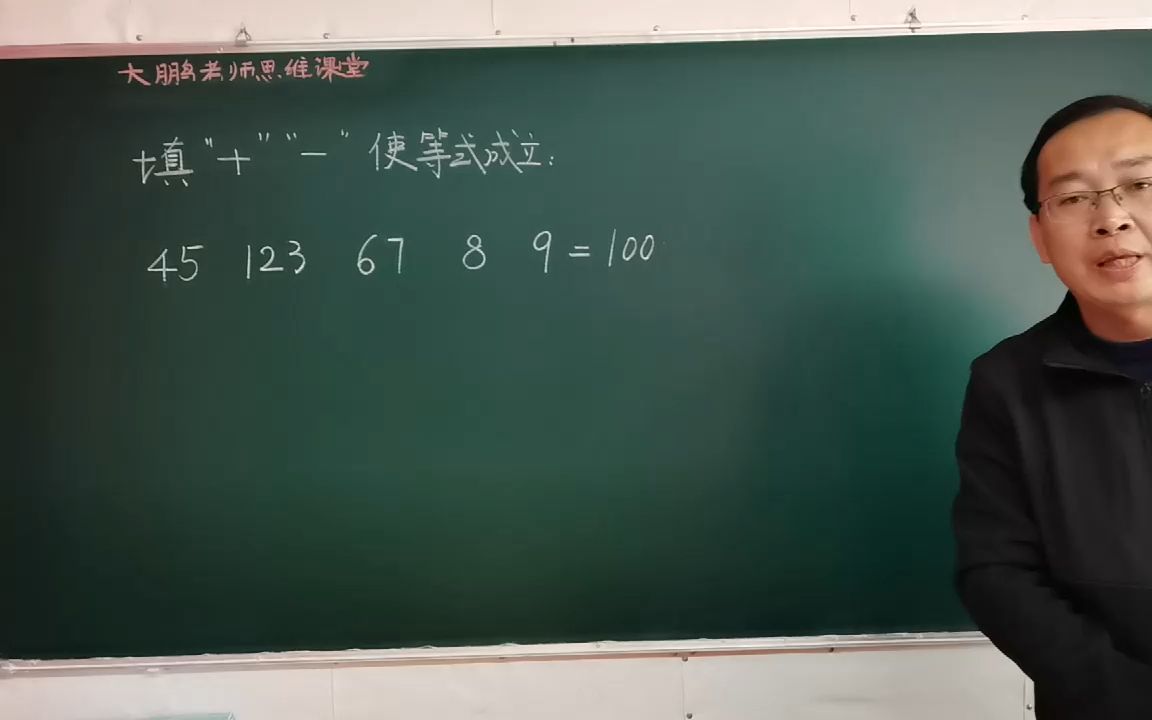 大鹏老师思维课堂
填"+""-"使等式成立:
45 123 67 8 9=100